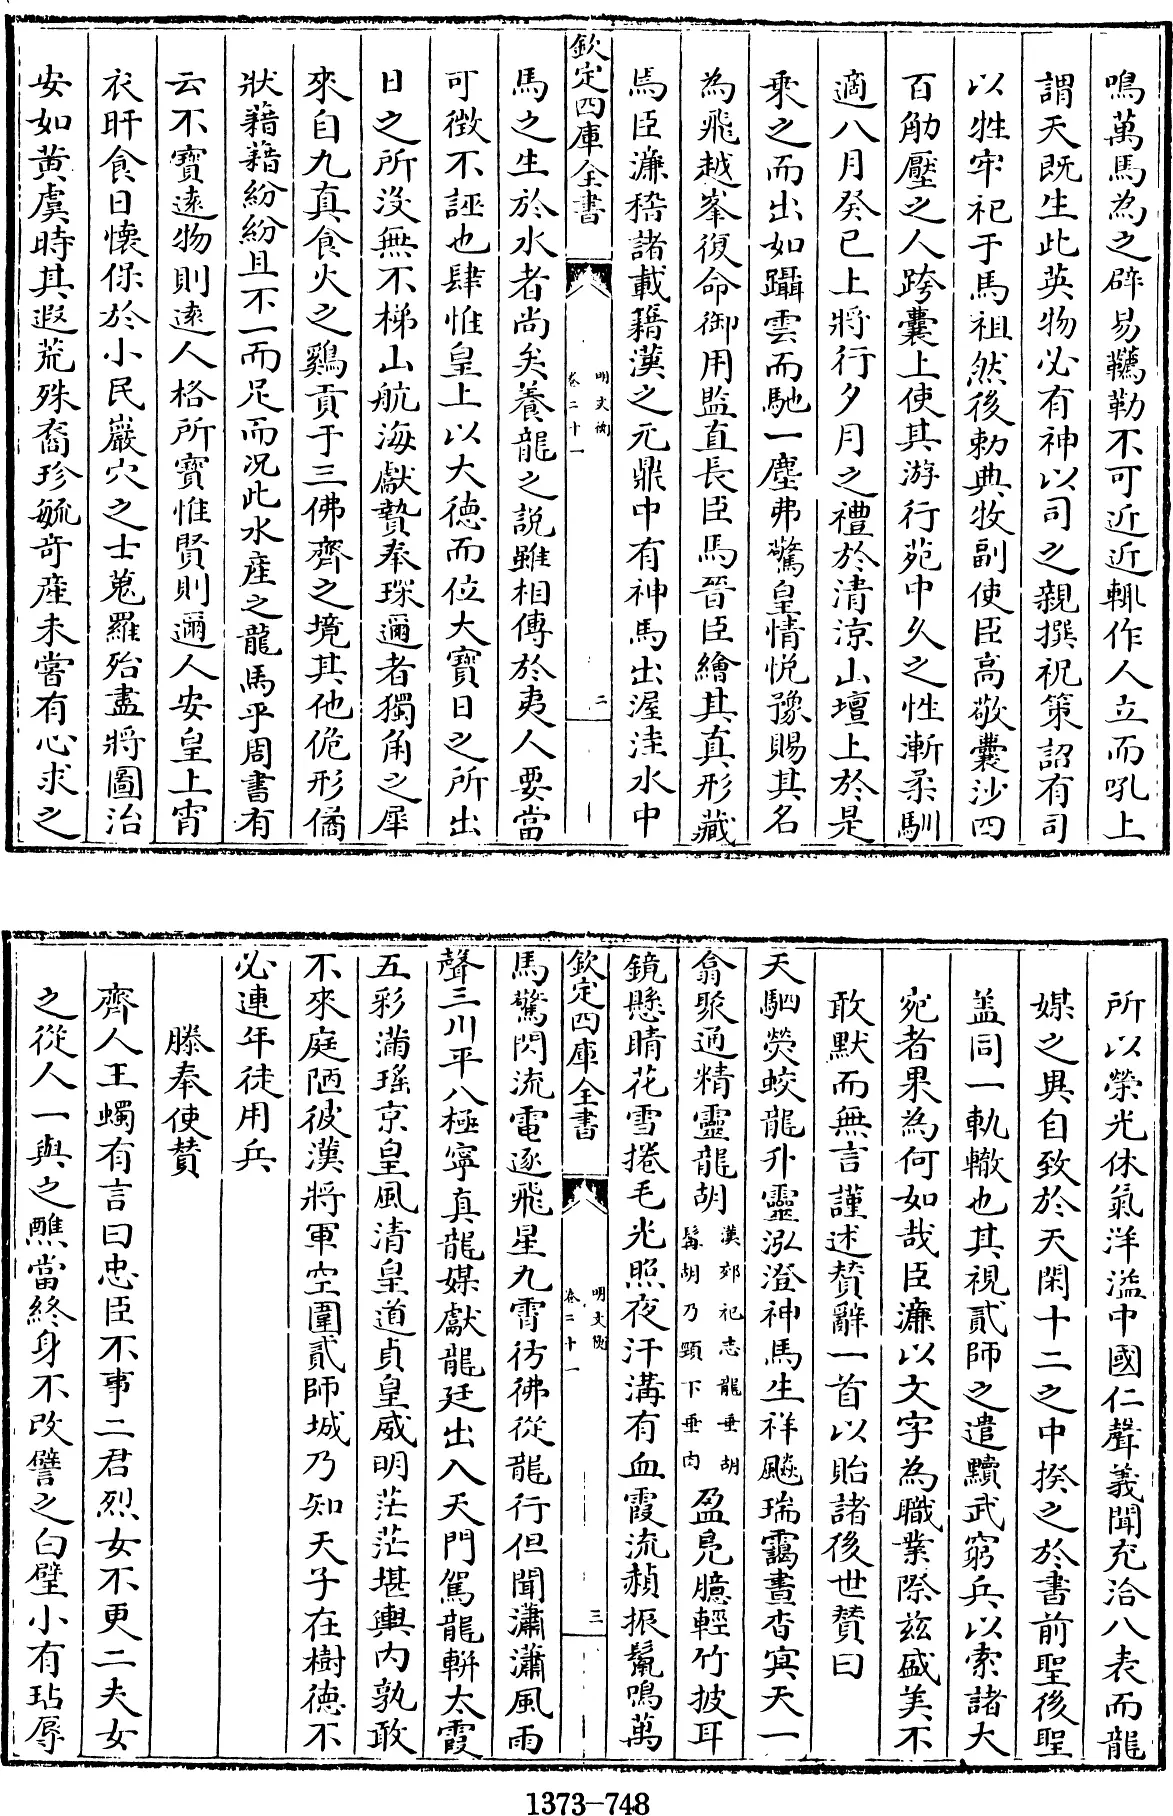 鳴萬馬為之辟易鞿勒不可近近輒作人立而吼上
謂天既生此英物必有神以司之親撰祝策詔有司
以牲牢祀于馬祖然後勅典牧副使臣高敬囊沙四
百觔壓之人跨囊上使其游行苑中久之性漸柔馴
適八月癸巳上將行夕月之禮於清涼山壇上於是
乘之而出如躡雲而馳一塵弗驚皇情悅豫賜其名
為飛越峯復命御用監直長臣馬晉臣繪其真形藏
焉臣濂稽諸載籍漢之元鼎中有神馬出渥洼水中
欽定四庫全書
明文衡
卷二十一
二
馬之生於水者尚矣養龍之說雖相傳於夷人要當
可徵不誣也肆惟皇上以大德而位大寶日之所出
日之所沒無不梯山航海獻贄奉琛邇者獨角之犀
來自九真食火之鷄貢于三佛齊之境其他佹形僪
狀藉藉紛紛且不一而足而况此水產之龍馬乎周書有
云不寶遠物則遠人格所寶惟賢則邇人安皇上宵
衣旰食日懷保於小民巖穴之士蒐羅殆盡將圖治
安如黄虞時其遐荒殊裔珍毓奇產未嘗有心求之
所以榮光休氣洋溢中國仁聲義聞充洽八表而龍
媒之異自致於天閑十二之中揆之於書前聖後聖
盖同一軌轍也其視貳師之遣黷武窮兵以索諸大
宛者果為何如哉臣濂以文字為職業際茲盛美不
敢默而無言謹述贊辭一首以貽諸後世贊曰
天駟熒蛟龍升靈泓澄神馬生祥飈瑞靄晝杳㝠天一
翕聚通精靈龍胡漢郊祀志龍垂胡髯胡乃頸下垂肉盈鳧臆輕竹披耳
鏡懸睛花雪捲毛光照夜汗溝有血霞流赬振鬣鳴萬
欽定四庫全書
明文衡
卷二十一
三
馬驚閃流電逐飛星九霄彷彿從龍行但聞瀟瀟風雨
聲三川平八極寧真龍媒獻龍廷出入天門駕龍輧太霞
五彩滿瑤京皇風清皇道貞皇威明茫茫堪輿内孰敢
不來庭陋彼漢將軍空圍貳師城乃知天子在樹德不
必連年徒用兵
滕奉使贊
齊人王蠋有言曰忠臣不事二君烈女不更二夫女
之從人一與之醮當終身不改譬之白璧小有玷辱
1373-748